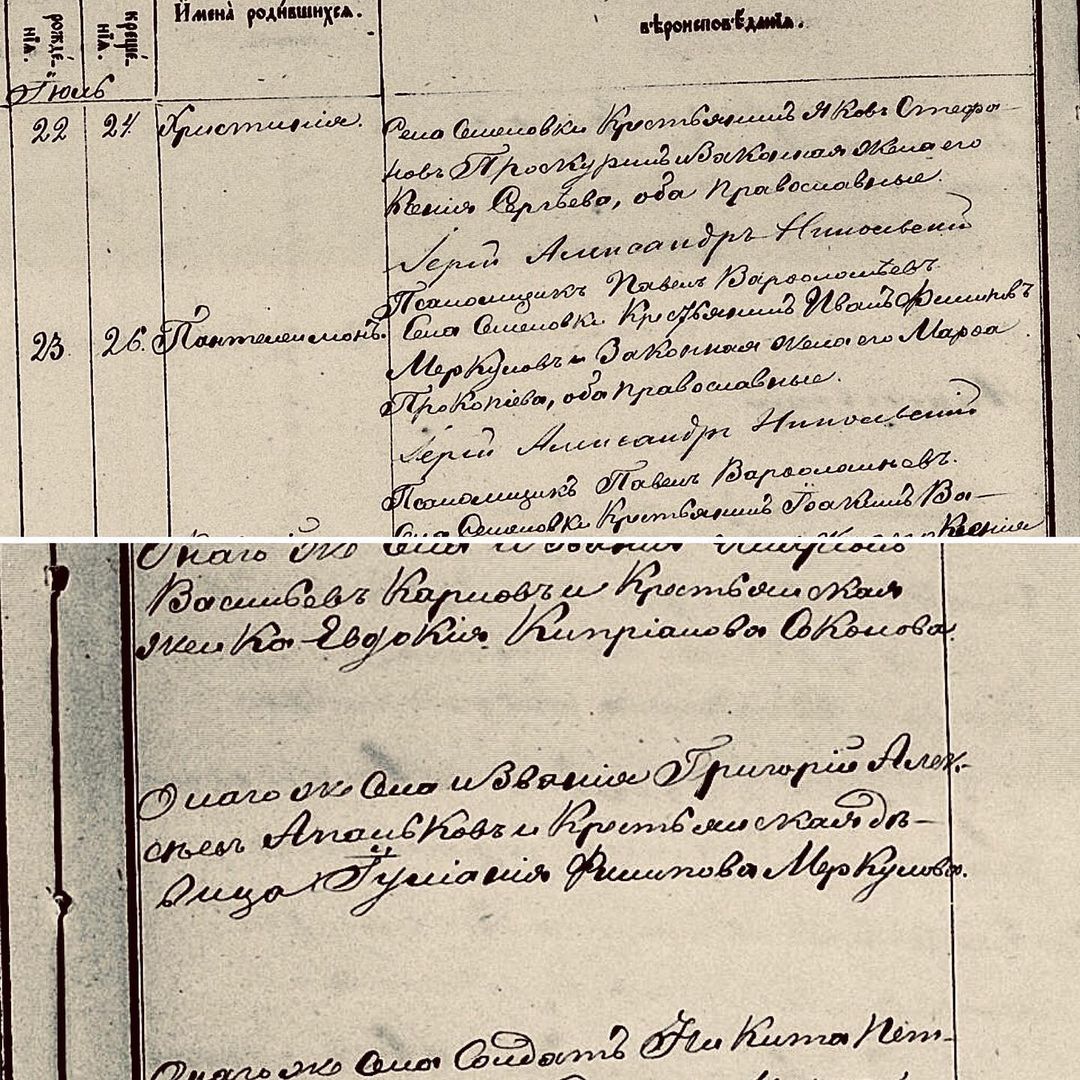 рожде́-
нїѧ.
креще́-
нїѧ.
Имена̀ роди́вшихсѧ.
вѣроисповѣ́данїѧ.
Іюль
22
24.
Христинія.
Села Семеновки Крестьянинъ Яковъ Стефа-
новъ Проскуринъ и Законная жена его
Ксенія Сергѣева, оба православные.
Іерей Александръ Никольскій
Псаломщикъ Павелъ Варѳоломѣевъ.
23.
26.
Пантелеимонъ.
Села Семеновки Крестьянинъ Иванъ Филиповъ
Меркуловъ и Законная жена его Марѳа
Прокопіева, оба православные.
Іерей Александръ Никольскій
Псаломщикъ Павелъ Варѳоломѣевъ.
Села Семеновки Крестьянинъ Іоакимъ Ва-
Ксенія
Онаго же Села и Званія
Васильевъ Карповъ и Крестьянская
женка Евдокія Кипріанова Соколова.
Онаго же Села и Званія Григорій Алек-
сѣевъ Апальковъ и Крестьянская дѣ-
вица Іуліанія Филипова Меркулова.
Онаго же Села Солдатъ Никита Пет-